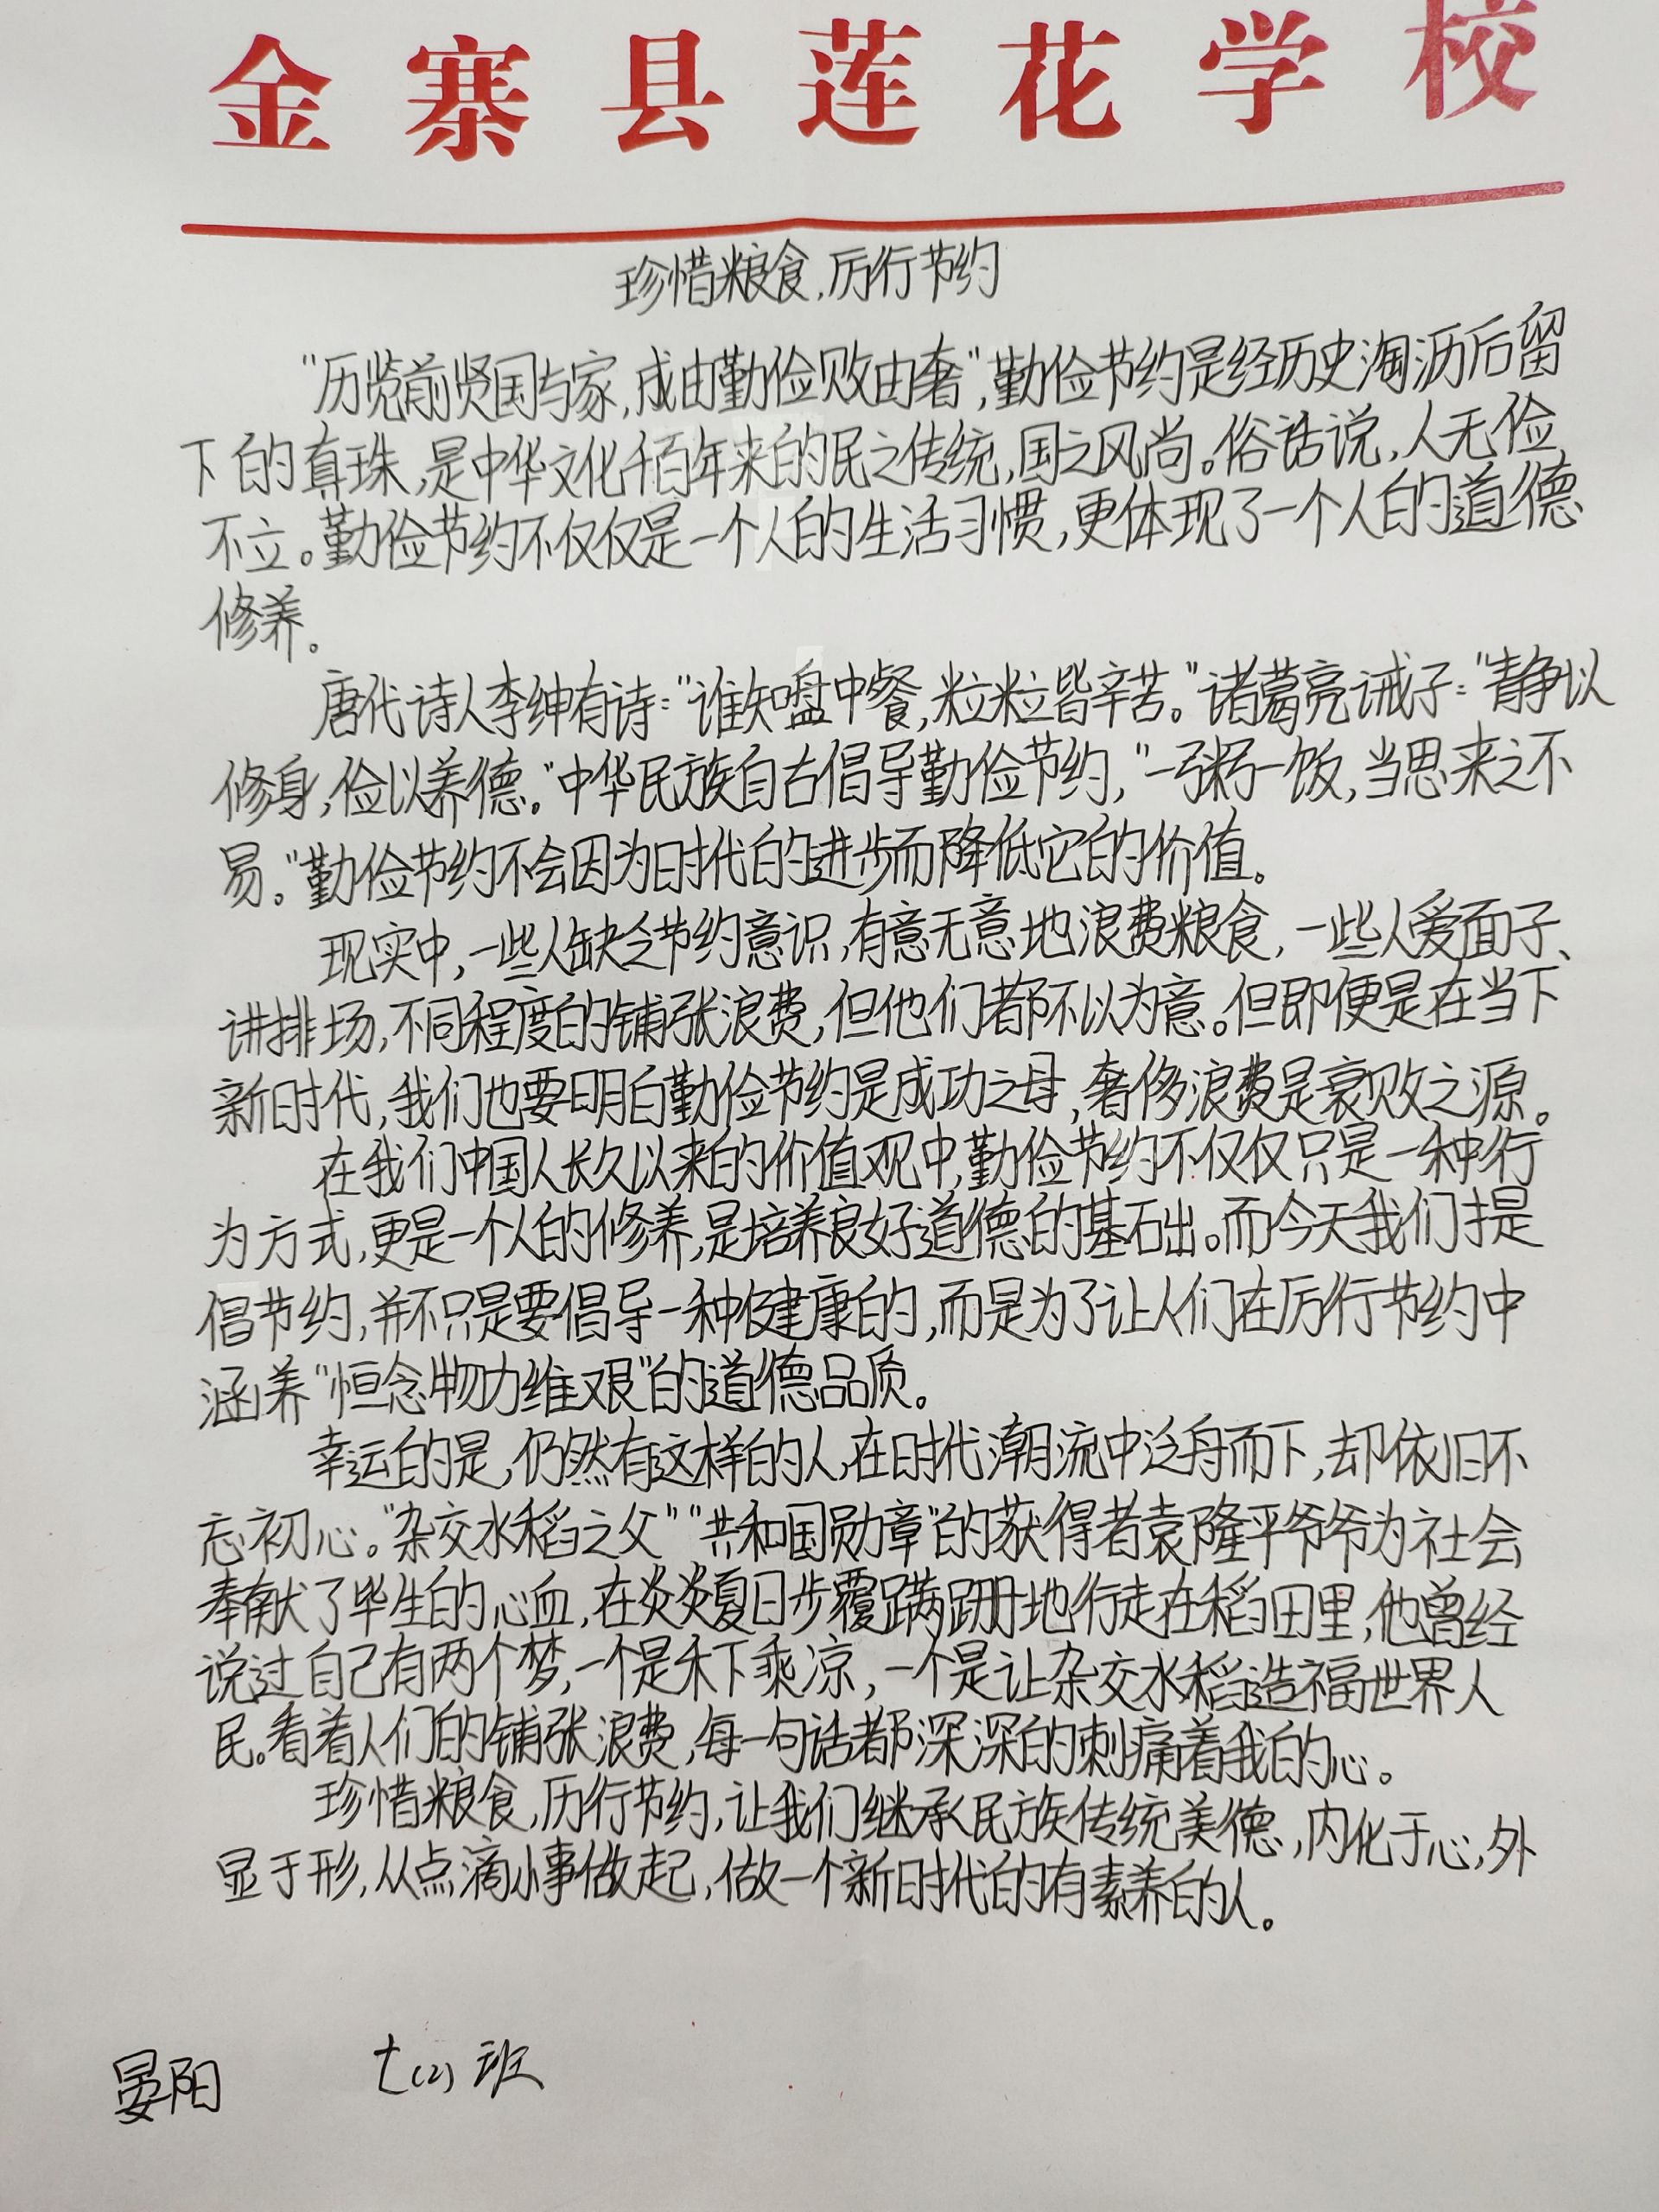 金寨县莲花学校
珍惜粮食,厉行节约
“历览前贤国与家,成由勤俭败由奢”,勤俭节约是经历史淘沥后留
下的真珠,是中华文化千百年来的民之传统,国之风尚。俗话说,人无俭
不立。勤俭节约不仅仅是一个人的生活习惯,更体现了一个人的道德
修养。
唐代诗人李绅有诗:“谁知盘中餐,粒粒皆辛苦。”诸葛亮诫子:“静以
修身,俭以养德。”中华民族自古倡导勤俭节约,“一粥一饭,当思来之不
易。”勤俭节约不会因为时代的进步而降低它的价值。
现实中,一些人缺乏节约意识,有意无意地浪费粮食,一些人爱面子、
讲排场,不同程度的铺张浪费,但他们都不以为意。但即便是在当下
新时代,我们也要明白勤俭节约是成功之母,奢侈浪费是衰败之源。
在我们中国人长久以来的价值观中,勤俭节约不仅仅只是一种行
为方式,更是一个人的修养,是培养良好道德的基石出。而今天我们提
倡节约,并不只是要倡导一种健康的,而是为了让人们在厉行节约中
涵养“恒念物力维艰”的道德品质。
幸运的是,仍然有这样的人,在时代潮流中泛舟而下,却依旧不
忘初心。“杂交水稻之父”“共和国勋章”的获得者袁隆平爷爷为社会
奉献了毕生的心血,在炎炎夏日步覆蹒跚地行走在稻田里,他曾经
说过自己有两个梦,一个是禾下乘凉,一个是让杂交水稻造福世界人
民。看着人们的铺张浪费,每一句话都深深的刺痛着我的心。
珍惜粮食,历行节约,让我们继承民族传统美德,内化于心,外
显于形,从点滴小事做起,做一个新时代的有素养的人。
晏阳 七(2)班